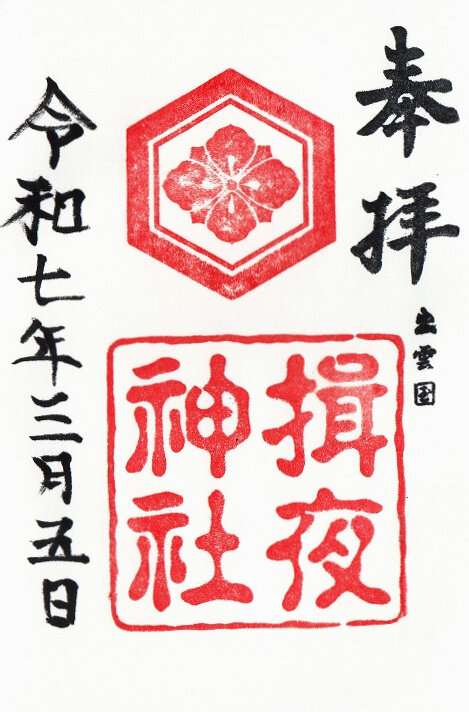 奉拝
出雲国
揖夜
神社
令和七年三月五日